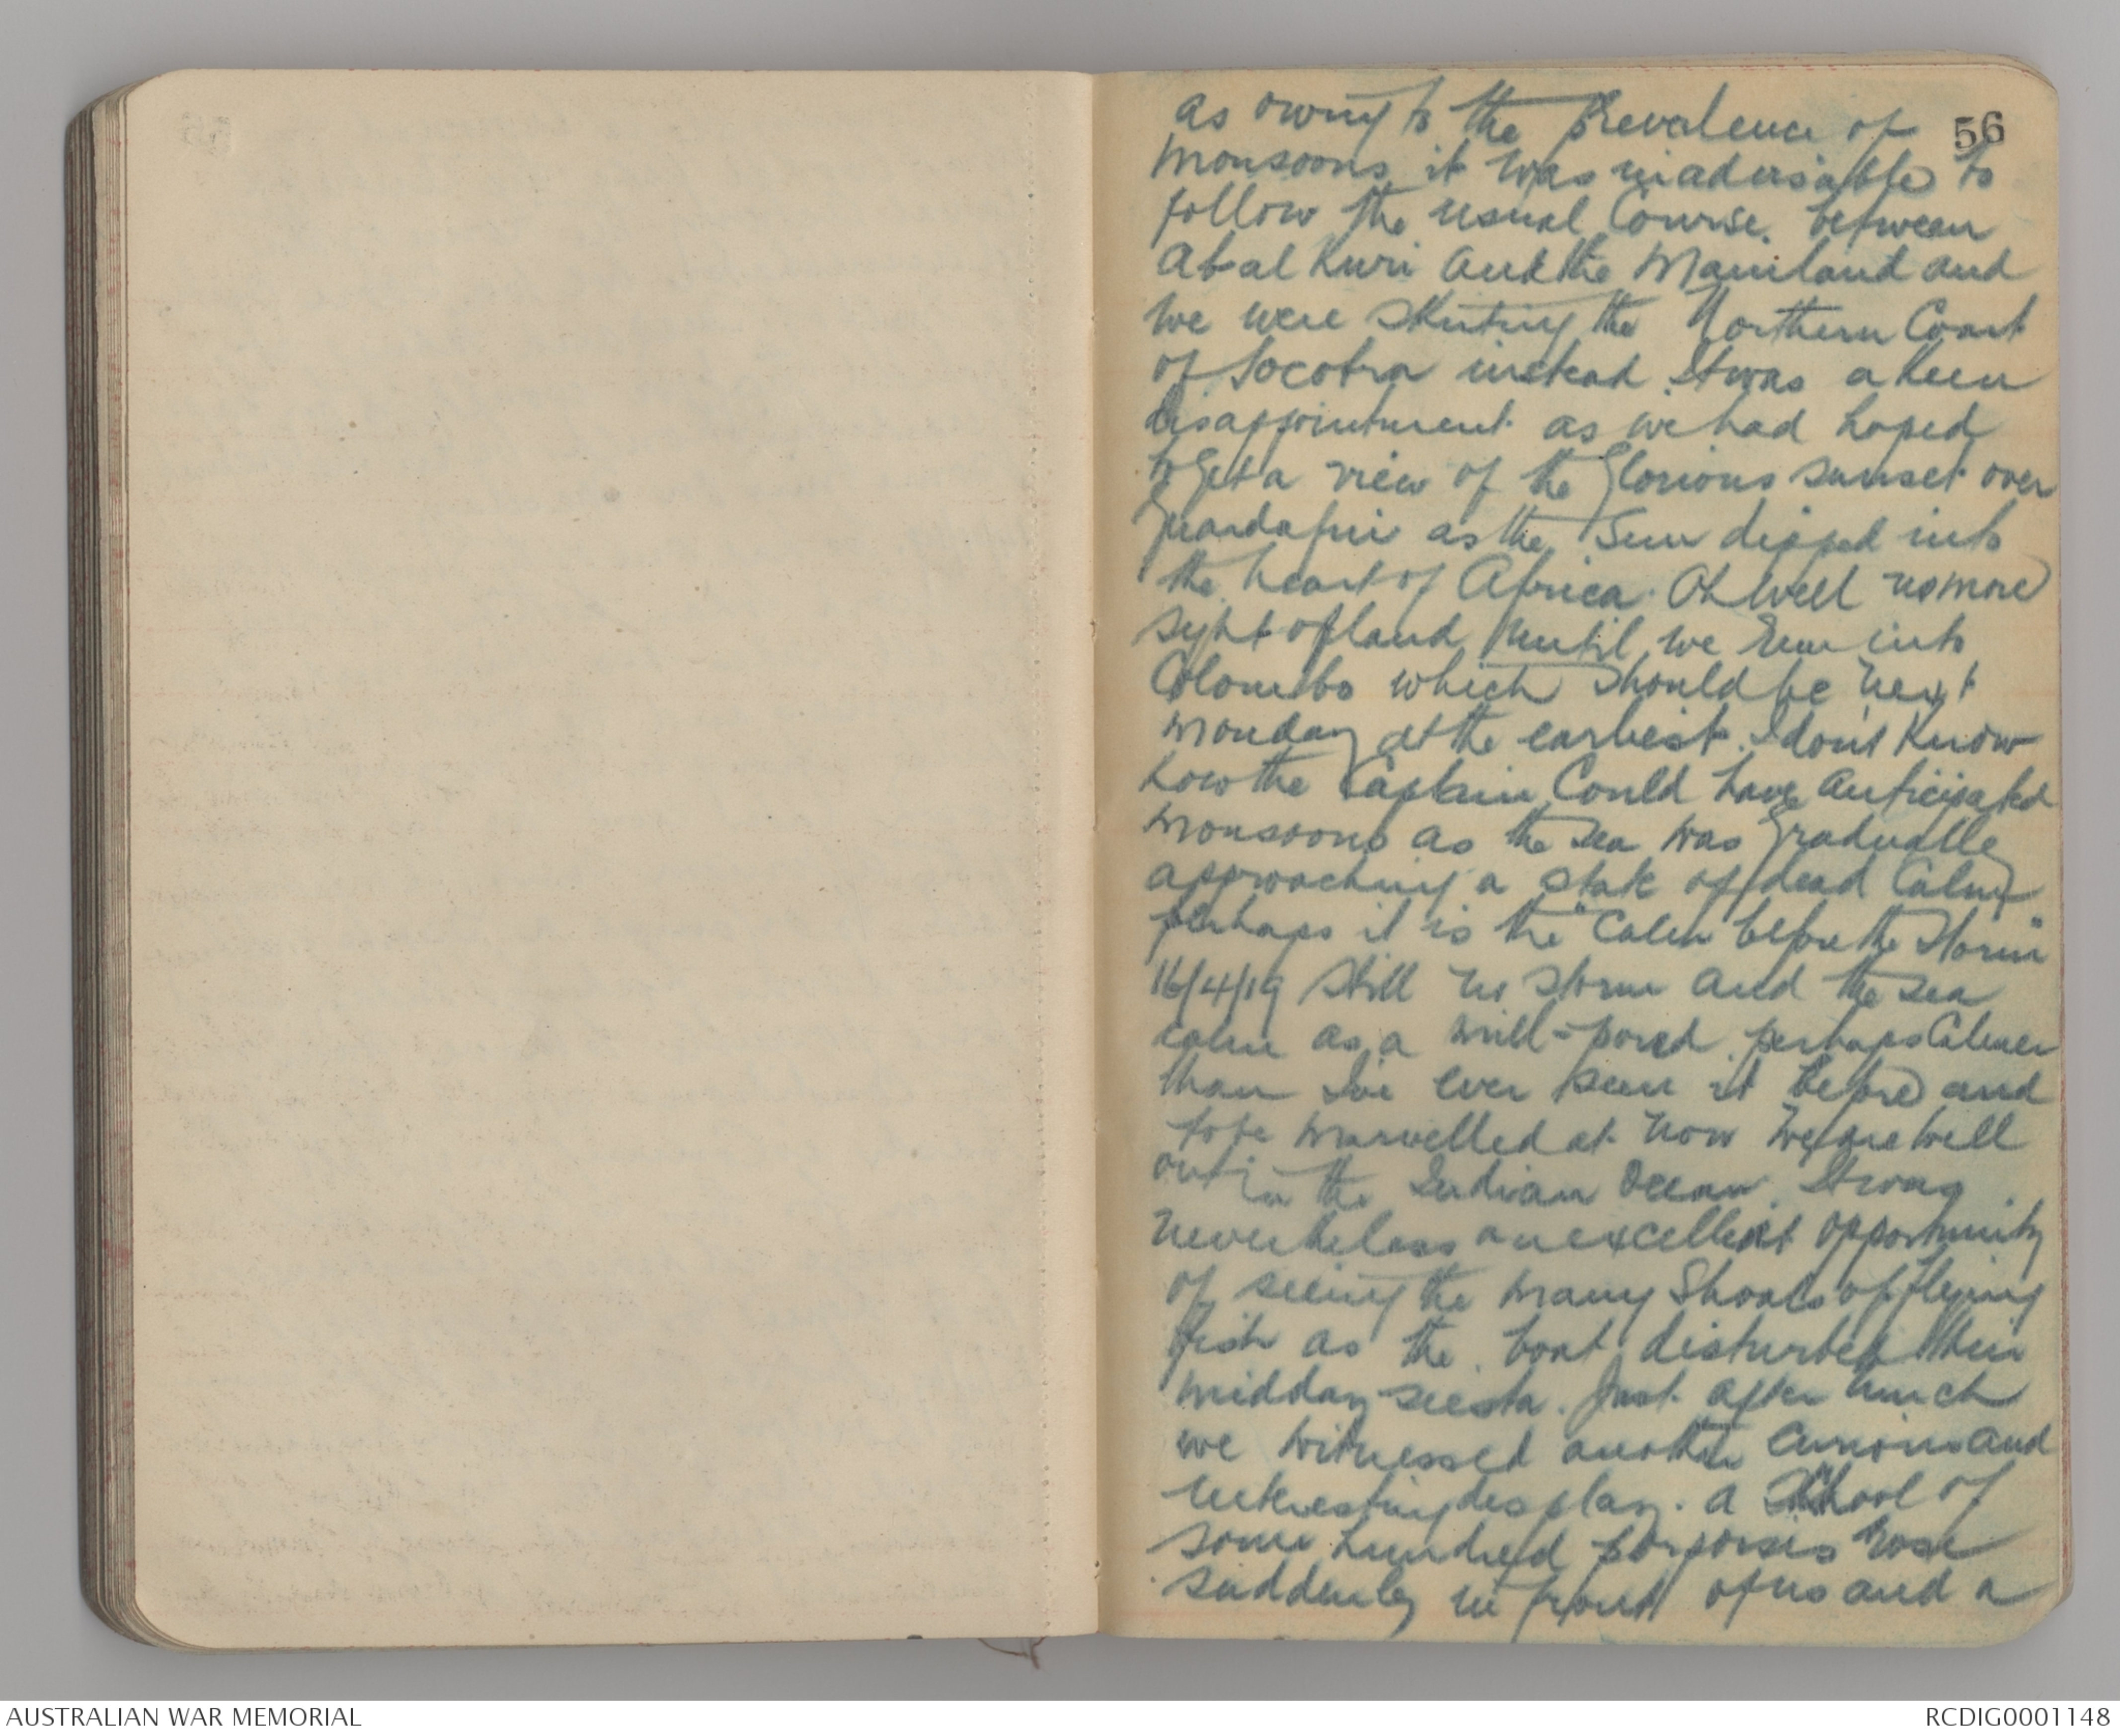 56
as owing to the prevalence of
monsoons it was inadvisable to
follow the usual Course. between
Abal Kuri and the Mainland and
we were skirting the Northern Coast
of Socotra instead. It was a keen
disappointment as we had hoped
to get a view of the Glorious sunset over
Guardafui as the Sun dipped into
the heart of Africa. Oh well no more
sight of land until we run into
Colombo which should be next
monday at the earliest. I don't know
how the Captain Could have anticipated
monsoons as the sea was gradually
approaching a state of dead Calm
perhaps it is the "Calm before the Storm"
16/4/19 Still no storm and the sea
calm as a mill-pond. perhaps Calmer
than I've ever seen it before and
to be marvelled at now we are well
out in the Indian Ocean. It was
nevertheless an excellent opportunity
of seeing the many Shoals of flying
fish as the boat disturbed their
midday siesta. Just after lunch
we witnessed another Curious and
interesting display. a School of
some hundred porpoises rose
suddenly in front of us and a
AUSTRALIAN WAR MEMORIAL
RCDIG0001148